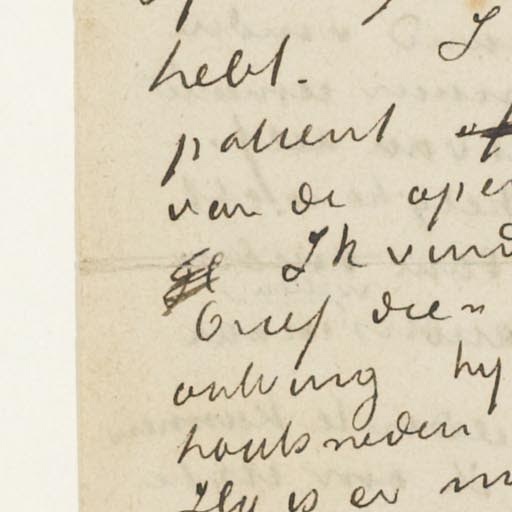 hebt. I
patient
van de ope
Ik vind
brief dien
ontving hy
houtsneden
Hy is er m